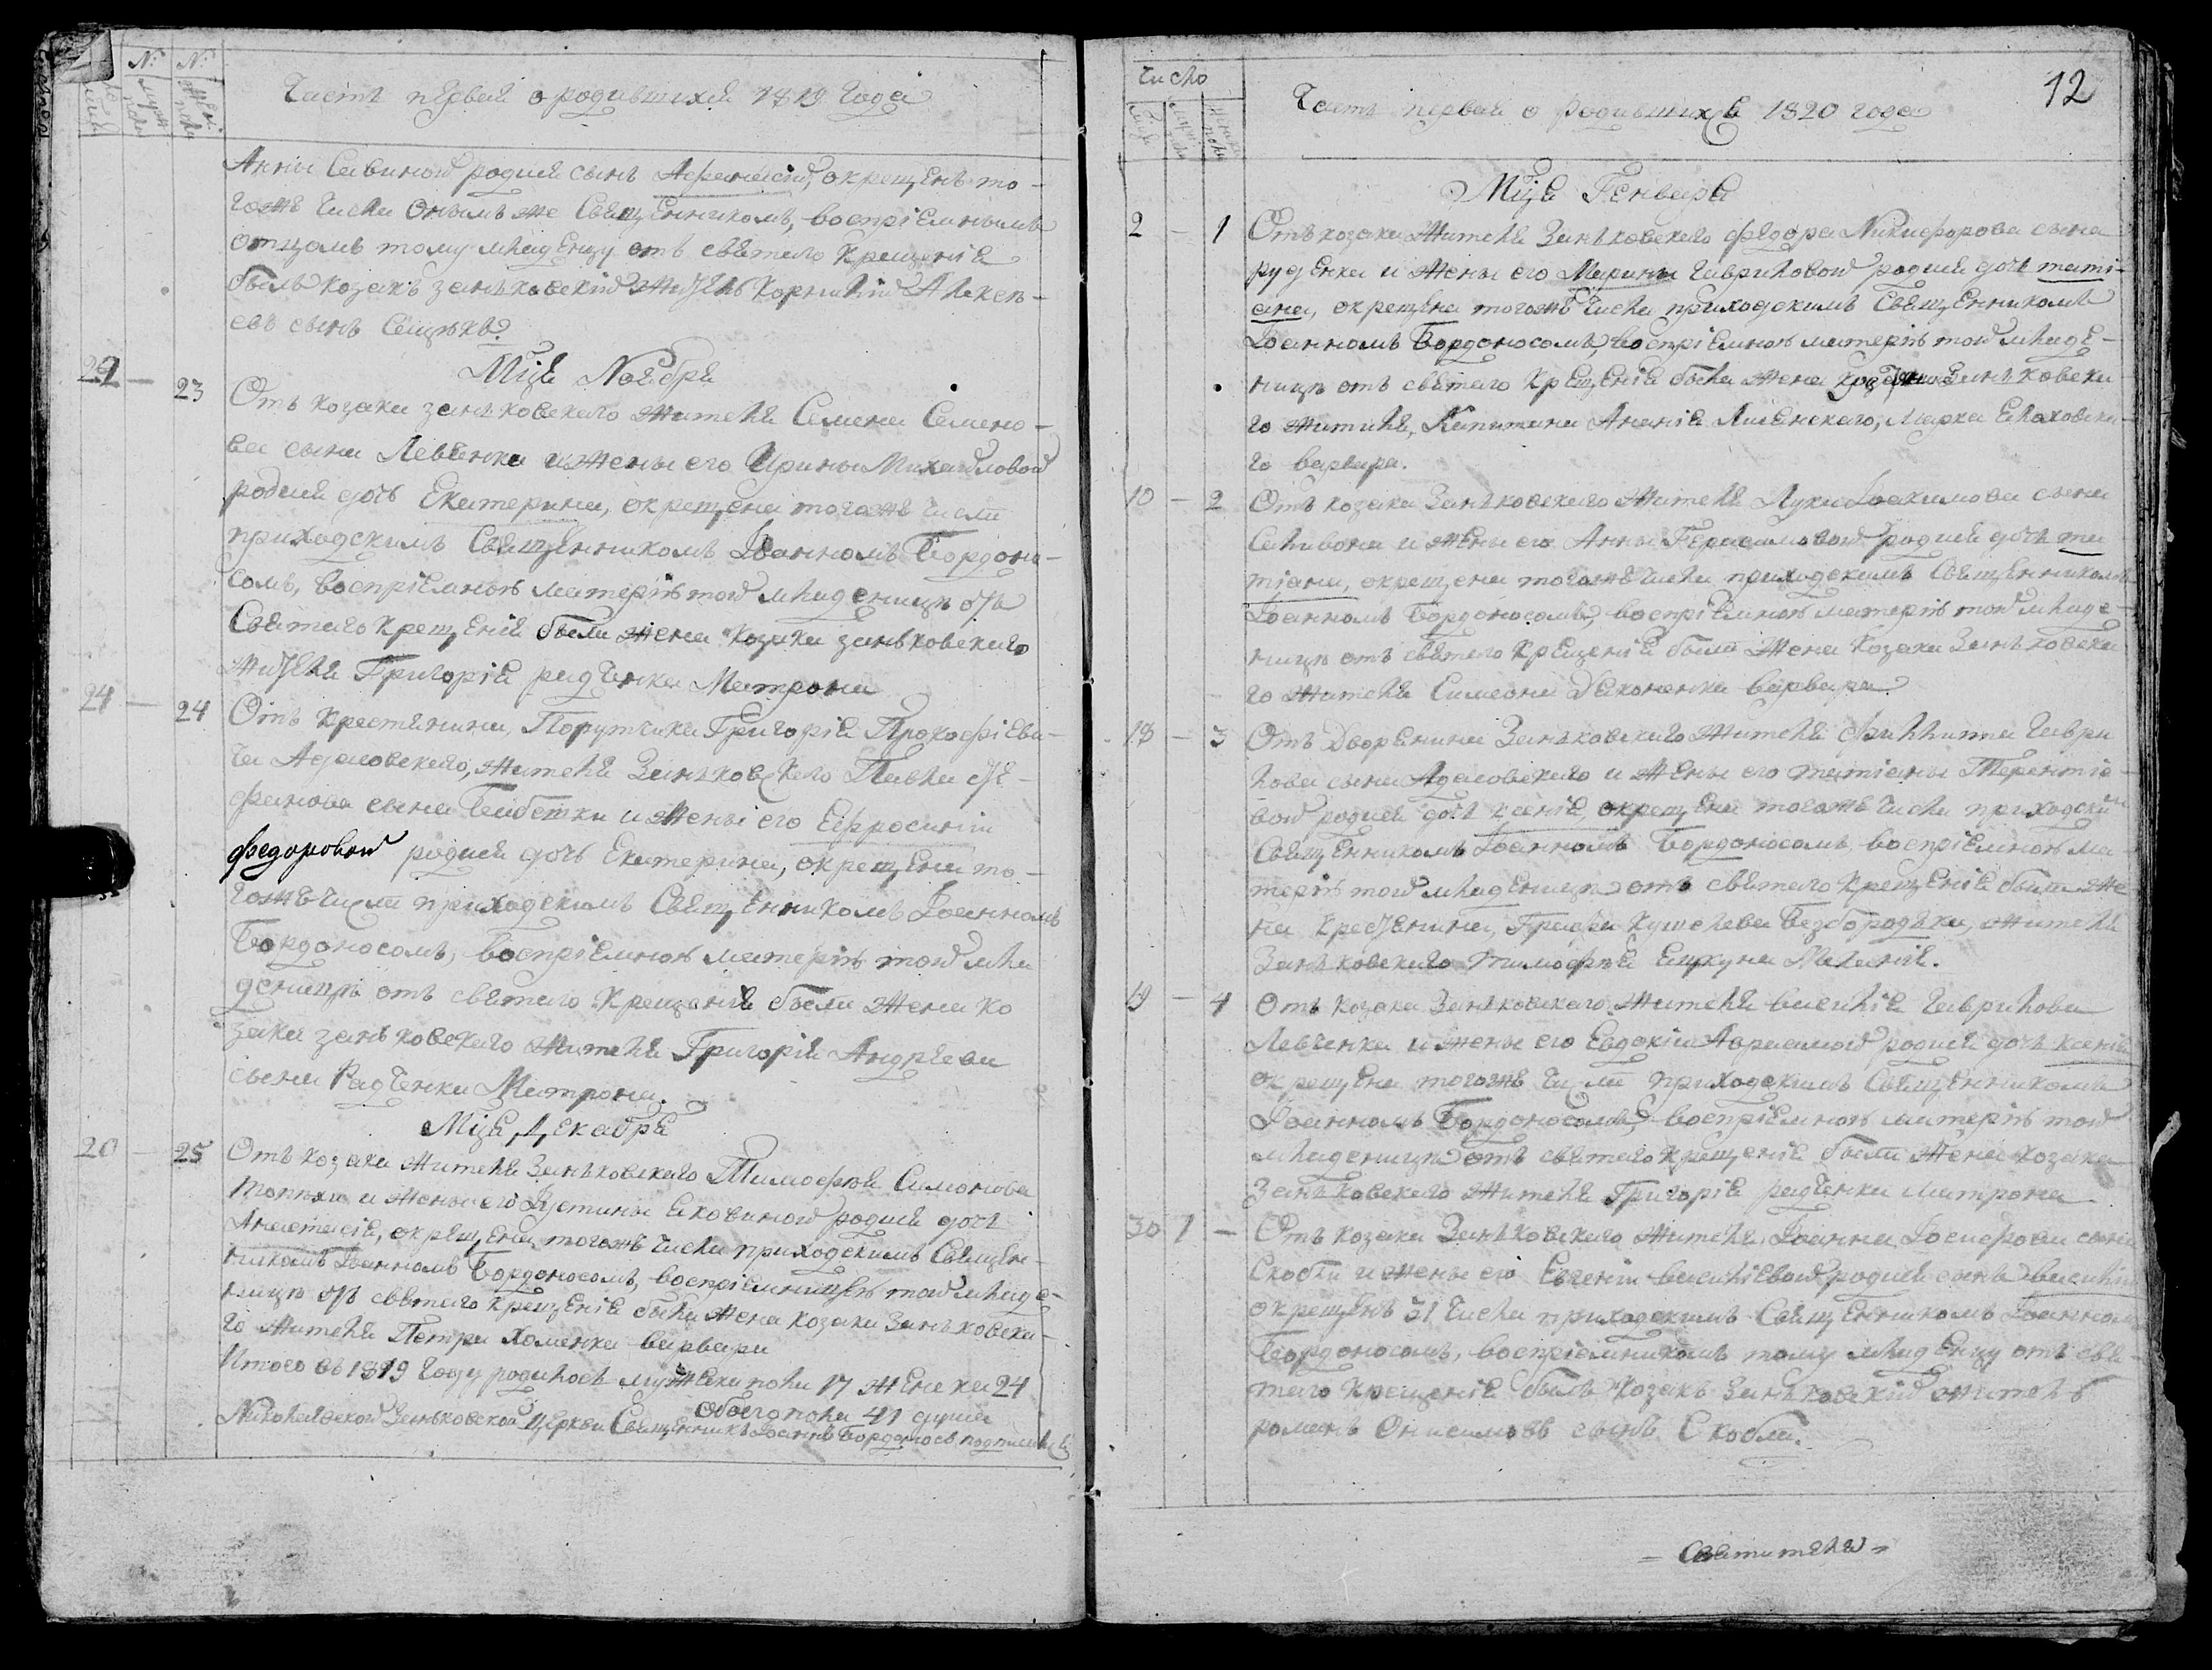 №: №:
Часть первая о родившихся 1819 года
Анны Савиной родися сынъ Афанасій, окрещенъ то-
гожъ числа онымъ же Священникомъ, воспріемнымъ
отцомъ тому младенцу отъ святаго крещенія
былъ козакъ зенковскій житель Корнилій Алексѣ-
евъ сынъ
Мца Ноября
22 — 23 Отъ козака зенковскаго жителя Семена Семено-
ва сына Левченка и жены его Ирины Михайловой
родися дочь Екатерина, окрещена тогожъ числа
приходскимъ Священникомъ Іоанномъ Бордоно-
сомъ, воспріемною матерію той младеницѣ отъ
Святаго крещенія была жена козака зенковскаго
жителя Григорія радченка Матрона
24 — 24 Отъ крестянина, Порутчика Григорія Прокофіеви-
ча Адамовскаго, жителя Зенковскаго Павла сте-
фанова сына и жены его Ефросиніи
федоровой родися дочь Екатерина, окрещена то-
гожъ числа приходскимъ Священникомъ Іоанномъ
Бордоносомъ, воспріемною матерію той мла
деницѣ отъ святаго крещенія была жена ко
зака зенковскаго жителя Григорія Андреева
сына Радченка Матрона.
Мца Декабря
20 — 25 Отъ козака жителя Зенковскаго Тимофея Симонова
и жены его Іустины Яковиной родися дочь
Анастасія, окрещена тогожъ числа приходскимъ Священ-
никомъ Іоанномъ Бордоносомъ, воспріемницею той младе-
ницѣ отъ святаго крещенія была жена козака Зенковска-
го жителя Петра Хоменка варвара
Итого въ 1819 году родилось мужеска пола 17 женска 24
обоего пола 41 душа
Николаевской Зенковской церкви Священникъ Іоаннъ Бордоносъ подписался
12
Число
Часть первая о родившихся 1820 года
Мца Генваря
2 — 1 Отъ козака жителя Зенковскаго федора Никифорова сына
руденка и жены его Марины гавриловой родися дочь тати-
ана, окрещена тогожъ числа приходскимъ Священникомъ
Іоанномъ Бордоносомъ, воспріемною матерію той младе-
ницѣ отъ святаго крещенія была жена Зенковска
го жителя, Капитана Ананія Лисенскаго, Марка
го варвара.
10 — 2 Отъ козака Зенковскаго жителя Луки Іоакимова сына
Саливона и жены его Анны Герасимовой родися дочь та
тіана, окрещена тогожъ числа приходскимъ Священникомъ
Іоанномъ Бордоносомъ, воспріемною матерію той младе-
ницѣ отъ святаго крещенія была жена козака Зенковска
го жителя Симеона Дяконенка варвара
18 — 3 Отъ Дворянина Зенковскаго жителя Филлипа гаври
лова сына Адамовскаго и жены его татіаны Терентіе-
вой родися дочь ксенія, окрещена тогожъ числа приходским
Священникомъ Іоанномъ Бордоносомъ воспріемною ма-
терію той младеницѣ отъ святаго крещенія была же
на крестянина, Графа Кушелева Безбородька, жителя
Зенковскаго тимофея Меланія.
19 — 4 Отъ козака Зенковскаго жителя василія гаврилова
Левченка и жены его Евдокіи Авраамовой родися дочь ксенія
окрещена тогожъ числа приходскимъ Священникомъ
Іоанномъ Бордоносомъ, воспріемною матерію той
младеницѣ отъ святаго крещенія была жена козака
Зенковскаго жителя Григорія радченка матрона
30 1 — Отъ козака Зенковскаго жителя Іоанна Іосифова сына
Скобли и жены его Евгеніи василіевой родися сынъ василій
окрещенъ 31 числа приходскимъ Священникомъ Іоанномъ
Бордоносомъ, воспріемникомъ тому младенцу отъ свя-
таго крещенія былъ козакъ Зенковскій житель
романъ Онисимовъ сынъ Скобля.